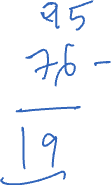 95
76 -
19